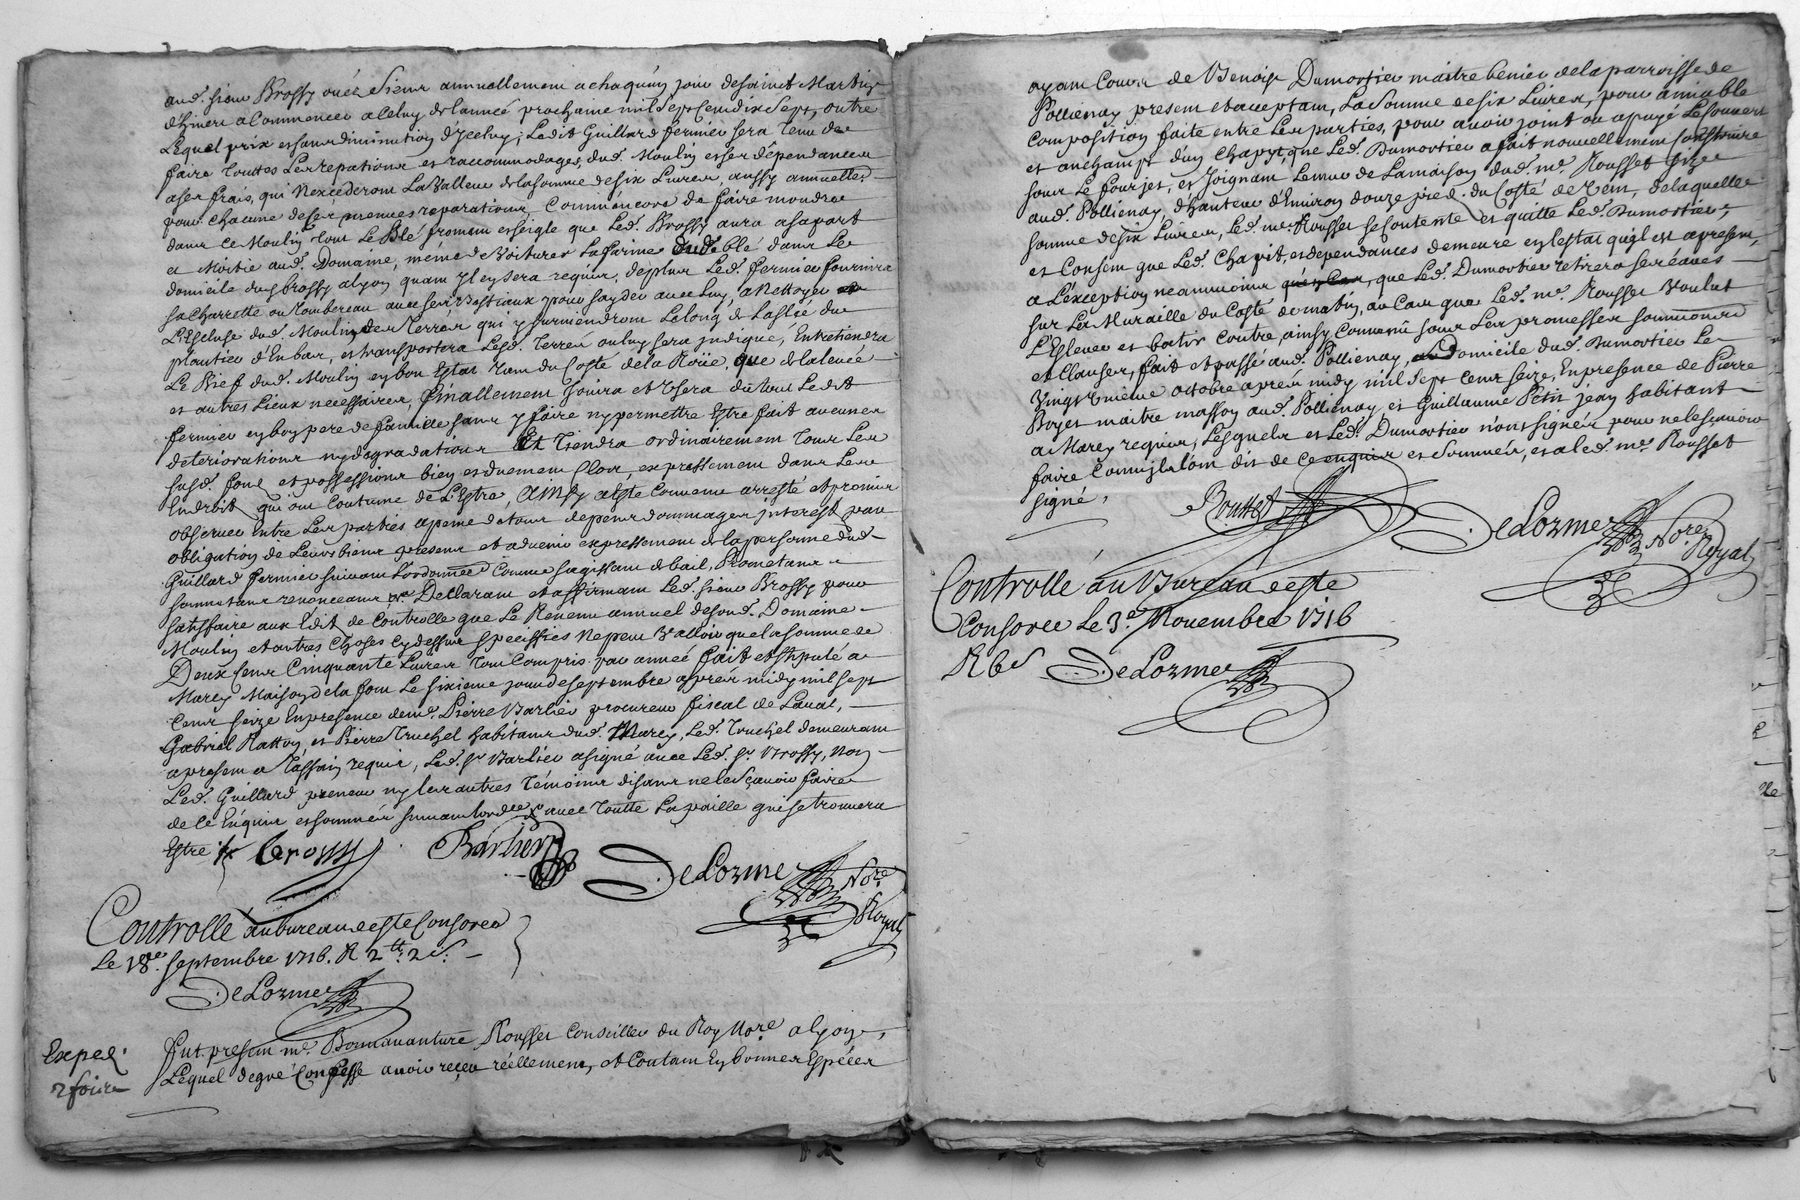 aud. sieur Brossy ou és siens annuellement a chaquũ jour de saint Martin
d'hiver a Commencer a celuy de l'année prochaine mil sept cent dix sept, outre
Lequel prix et sans diminution d'Jceluy, Ledit Guillard fermier sera tenu de
faire touttes Les reparations et raccommodages, dud. Moulin et ses dépendances
a ses frais, qui N'excederont La Valleur de la somme de six Livres aussy annuelle
pour chacune desd. menues reparations, Comm'encore de faire moudre
dans ce Moulin tout Le Blé froment et seigle que Led. Brossy aura a sa part
et Moitié aud. Domaine, méme de Voiturer La farine dud. blé dans Le
domicile dud. sr Brossy a Lyon quant Jl en sera requis, de plus Led. fermier fournira
sa Charrette ou tombereau avec ses Bestiaux pour s'ayder avec luy, a Nettoyer
L'Escluse dud. Moulin des Terres qui y surviendront Le long de
d'En bas, et transportera Lesd. terres ou luy sera indiqué, Entretiendra
Le Bief dud. Moulin en bon Estat tant du Costé de la Roüe, que de la levée
et autres Lieux necessaires, finallement Jouira et Usera du tout Ledit
fermier en bon pere de famille sans y faire ny permettre Estre fait aucunes
deteriorations ny degradations Et tiendra ordinairement tous Les
susd. fonds et possessions bien et duement Clos, expressement dans Les
Endroits qui ont Coutume de L'Estre, Ainsy a esté Convenu arresté et promis
observer Entre Les parties a peine de tous depens dommages interest, par
obligation de Leurs biens presens et advenir expressement de la personne dud.
Guillard fermier suivant L'ordonnée comme s'agissant de bail, Promettans
soumettans renonceans Declarant et affirmant Led. sieur Brossy pour
satisfaire aux Edit de Controlle que Le Revenu annuel desond. Domaine
Moulin et autres Choses Cy dessus Speciffiés Ne peut Valloir que la somme de
Deux Cens Cinquante Livres tout Compris par année fait et stipulé a
Marcy Maison de la font Le sixieme jour de septembre apres midy mil sept
Cens seize En presence de me. Pierre Barlier procureur fiscal de Laval,
Gabriel Ratton, et Pierre Truchel habitans dud. Marcy, Led. Truchel demeurant
apresent a Tassain requis, Led. sr Barlier a signé avec Led. sr. Brossy, Non
Led. Guillard preneur ny Les autres témoins disans ne le sçavoir faire
de Ce Enquis et sommés suivant L'ordce avec toutte La paille qui se trouvera
Estre
Brossy Barlier DeLorme Nore. Royal
Controllé au bureau de ste Consorce
Le 18e. septembre 1716. R 2 tt: 2 s.
DeLorme
Exped.
2 fois
fut present me. Bonnavanture Rousset Conseiller du Roy Nore a Lyon,
Lequel de gré Confesse avoir reçeu réellement, et Contant En bonnes Espéces
ayant Cours de Benoist Dumortier maitre benier de la parroisse de
Pollienay present et acceptant, La somme de six Livres, pour amiable
Composition faite entre Les parties, pour avoir joint ou apuyé Le Couvert
et d'un Chapyt, que Led. Dumortier a fait nouvellement Construire
sous Le forjet, et Joignant Le mur de La maison dud. me. Rousset
aud. Pollienay d'hauteur d'Environ douze pied. du Costé de de laquelle
somme de six Livres, Led. me. Rousset se Contente et quitte Led. Dumortier,
et Consent que Led. Chapit, et dependances demeure en l'estat qu'il est apresent,
a L'exception neammoins que Led. Dumortier retirera ses eaues
sur La Muraille du Costé de matin, au Cas que Led. me. Rousset Voulut
L'Eslever et batir Contre, ainsy Convenu sous Les promesses soumissions
et Clauses, fait et passé aud. Pollienay, domicile dud. Dumortier Le
Vingt unieme octobre apres midy mil sept Cens seize, En presence de Pierre
Boyer maitre masson aud. Pollienay, et Guillaume Petit jean habitant
a Marcy requis, Lesquels et Led. Dumortier n'ont signés pour ne le sçavoir
faire Comm'Jls ont dit de Ce enquis et sommés, et a Led. me. Rousset
signé,
Rousset DeLorme Nore. Royal
Controllé au Bureau de ste
Consorce Le 3e. Novembre 1716
R 6 s DeLorme